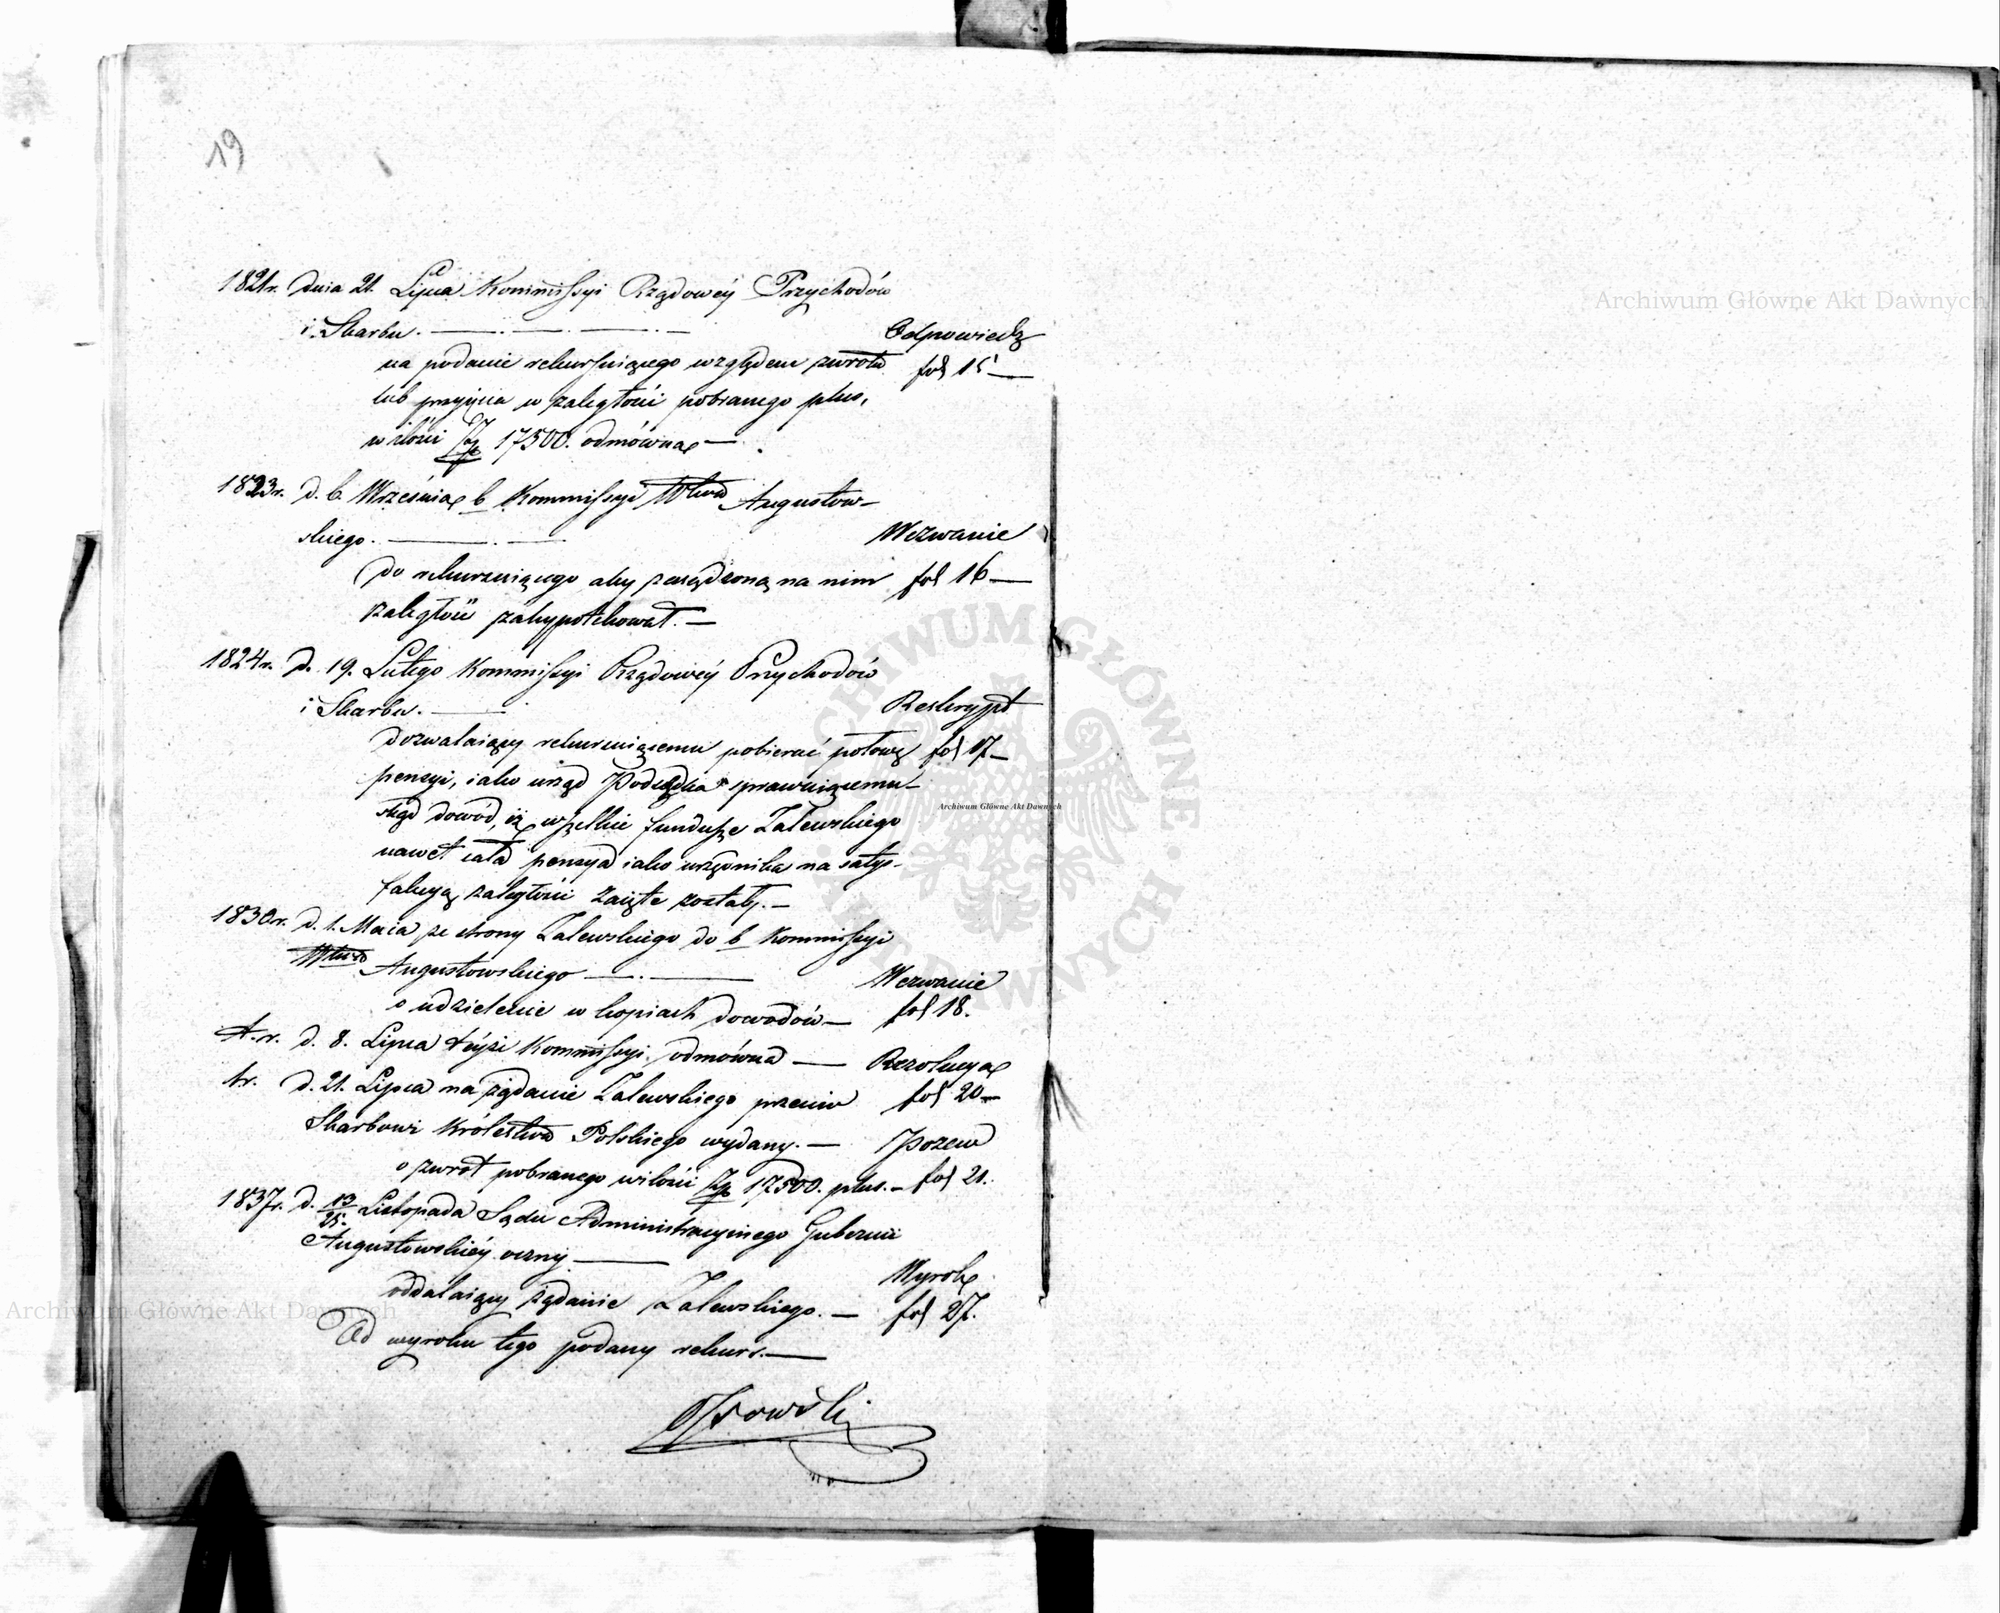 19
1821r. Dnia 21. Lipca Kommissyi Rządowéy Przychodów
i Skarbu. Odpowiedź
na podanie rekursuiącego względem zwrotu fol 15
lub przyjęcia w zaległości pobranego plus,
w ilości Złp 17500. odmówna
1823r. d. 6. Września b Kommissyi Wtwa Augustow-
skiego. Wezwanie
do rekursuiącego aby zasądzoną na nim fol 16
zaległość zahypotekował.
1824r. d. 19. Lutego Kommissyi Rządowéy Przychodów
i Skarbu. Reskrypt
dozwalaiący rekursuiącemu pobierać połowę fol 17
pensyi, iako urząd Podsędka sprawuiącemu
skąd dowód, iż wszelkie fundusze Zalewskiego
nawet cała pensya iako urzędnika na satys-
fakcyą zaległości zaięte zostały.
1830r. d. 1. Maia ze strony Zalewskiego do b Kommissyi
Wtwa Augustowskiego Wezwanie
o udzielenie w kopiach dowodów fol 18.
t.r. d. 8. Lipca téyże Kommissyi odmówna Rezolucya
t.r. d. 21. Lipca na żądanie Zalewskiego przeciw fol 20
Skarbowi Królestwa Polskiego wydany. Pozew
o zwrot pobranego w ilości Złp 17500. plus. fol 21.
1837r. d. 13/25. Listopada Sądu Administracyinego Gubernii
Augustowskiéy oczny Wyrok
oddalaiący żądanie Zalewskiego. fol 27.
Od wyroku tego podany rekurs.
Archiwum Główne Akt Dawnych
Archiwum Główne Akt Dawnych
Archiwum Główne Akt Dawnych
ARCHIWUM GŁÓWNE AKT DAWNYCH